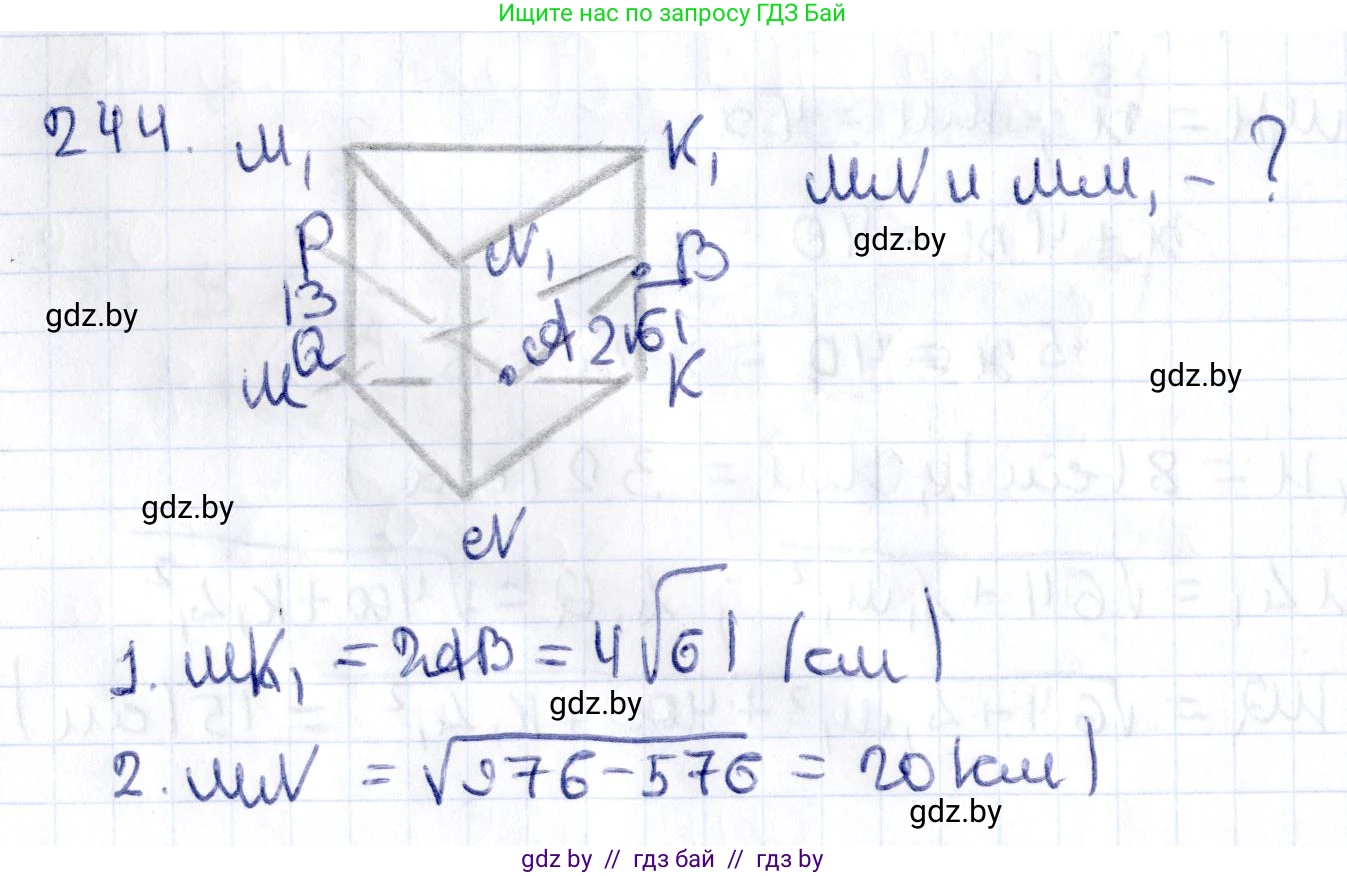 Ищите нас по запросу ГДЗ Бай
244.
M₁
K₁
MN и MM₁ - ?
gdz.by
P
N₁
B
13
gdz.by
A
2√61
Q
M
K
gdz.by
gdz.by
N
1. MK₁ = 2AB = 4√61 (см)
gdz.by
2. MN = √976-576 = 20 (см)
gdz.by
gdz by // гдз бай // гдз by